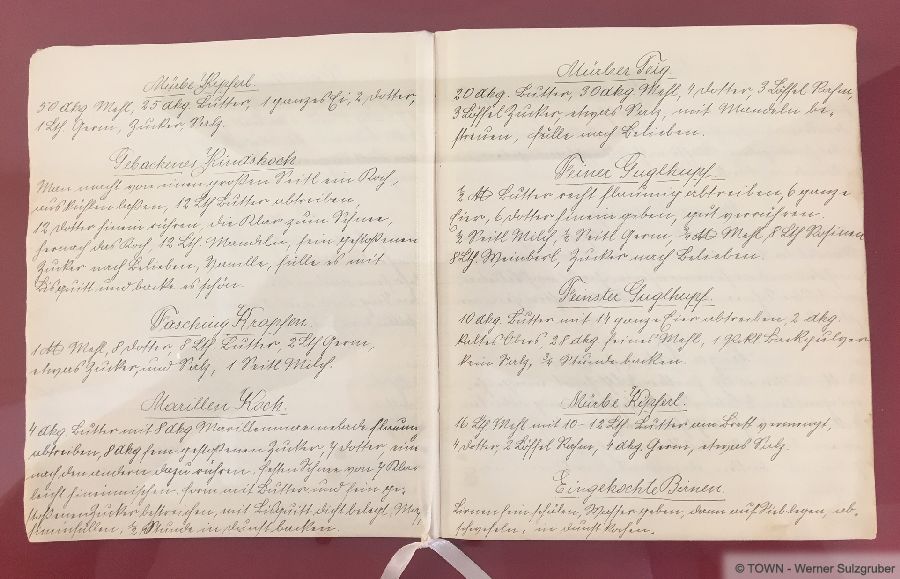 Mürbe Kipferl.
50 dkg. Mehl, 25 dkg. Butter, 1 ganzes Ei, 2 Dotter,
1 Lth Germ, Zucker, Salz.
Gebackenes Kindskoch
Man macht von einen großen Seitl ein Koch,
auskühlen laßen, 12 Lth Butter abtreiben,
12 Dotter hinein rühren, die Klar zum Schnee,
hernach das Koch 12 Lth Mandeln, fein gestoßenen
Zucker nach Belieben, Vanille, fülle es mit
Bisquitt und backe es schön.
Fasching Krapfen.
1 ℔ Mehl, 8 Dotter, 8 Lth Butter, 2 Lth Germ,
etwas Zucker, und Salz, 1 Seitl Milch.
Marillen Koch.
4 dkg Butter mit 8 dkg Marillenmarmelade flaumig
abtreiben, 8 dkg fein gestoßenen Zucker, 7 Dotter, ein
nach den andern dazu rühren. festen Schnee von 7 Klar
leicht hineinmischen, Form mit Butter und fein ge-
stoßenen Zucker bestreichen, mit Bisquitt dicht belegt,
hineinfüllen, ½ Stunde in Dunst backen.
Mürber Teig
20 dkg. Butter, 30 dkg Mehl, 4 Dotter, 3 Löffel Rahm,
3 Löffel Zucker etwas Salz, mit Mandeln be-
streuen, fülle nach Belieben.
Feiner Guglhupf.
½ ℔ Butter recht flaumig abtreiben 6 ganze
Eier, 6 Dotter hinein geben, gut verrühren.
½ Seitl Milch, ½ Seitl Germ, ℔ Mehl, 8 Lth Rosinen
8 Lth. Weinberl, Zucker nach Belieben.
Feinster Guglhupf.
10 dkg. Butter mit 14 ganze Eier abtreiben, 2 dkg.
kaltes Obers, 28 dkg feines Mehl, 1 Pkt Backpulver
kein Salz, ¾ Stunde backen.
Mürbe Kipferl.
16 Lth Mehl mit 10 - 12 Lth. Butter am Brett vermengt,
4 Dotter, 2 Löffel Rahm, 4 dkg. Germ, etwas Salz.
Eingekochte Birnen.
Birnen fein schälen, Wasser geben, dann auf Sieb legen, ab-
schwefeln, in Dunst kochen.
© TOWN - Werner Sulzgruber